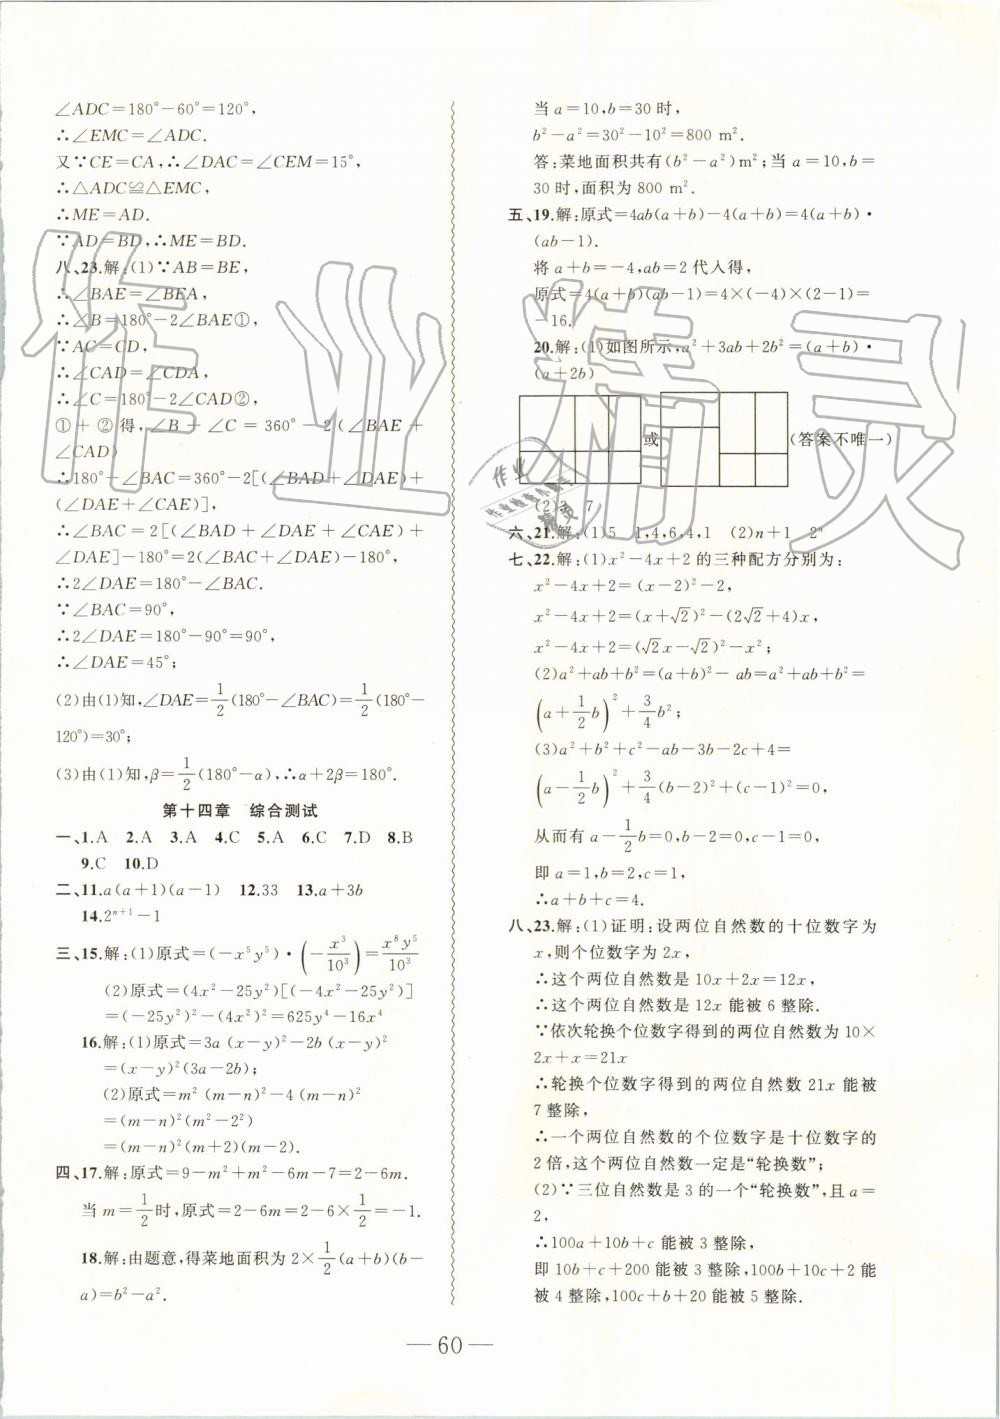 ∠ADC=180°-60°=120°,
∴∠EMC=∠ADC.
又∵CE=CA,∴∠DAC=∠CEM=15°,
∴△ADC≌△EMC,
∴ME=AD.
∵AD=BD,∴ME=BD.
八、23.解:(1)∵AB=BE,
∴∠BAE=∠BEA,
∴∠B=180°-2∠BAE①,
∵AC=CD,
∴∠CAD=∠CDA,
∴∠C=180°-2∠CAD②,
①+②得,∠B-∠C=360°-2(∠BAE+
∠CAD)
∴180°-∠BAC=360°-2[(∠BAD+∠DAE)+
(∠DAE+∠CAE)],
∴∠BAC=2[(∠BAD+∠DAE+∠CAE)+
∠DAE]-180°=2(∠BAC+∠DAE)-180°,
∴2∠DAE=180°-∠BAC.
∵∠BAC=90°,
∴2∠DAE=180°-90°=90°,
∴∠DAE=45°;
(2)由(1)知,∠DAE=1/2(180°-∠BAC)=1/2(180°-
120°)=30°;
(3)由(1)知,β=1/2(180°-α),∴α+2β=180°.
第十四章 综合测试
一、1.A 2.A 3.A 4.C 5.A 6.C 7.D 8.B
9.C 10.D
二、11.a(a+1)(a-1) 12.33 13.a+3b
14.2ⁿ⁺¹-1
三、15.解:(1)原式=(-x⁵y⁵)·(-x³/10³)=x⁸y⁵/10³
(2)原式=(4x²-25y²)[(-4x²-25y²)]
=(-25y²)²-(4x²)²=625y⁴-16x⁴
16.解:(1)原式=3a(x-y)²-2b(x-y)²
=(x-y)²(3a-2b);
(2)原式=m²(m-n)²-4(m-n)²
=(m-n)²(m²-2²)
=(m-n)²(m+2)(m-2).
四、17.解:原式=9-m²+m²-6m-7=2-6m.
当m=1/2时,原式=2-6m=2-6×1/2=-1.
18.解:由题意,得菜地面积为2×1/2(a+b)(b-
a)=b²-a².
当a=10,b=30时,
b²-a²=30²-10²=800 m².
答:菜地面积共有(b²-a²)m²;当a=10,b=
30时,面积为800 m².
五、19.解:原式=4ab(a+b)-4(a+b)=4(a+b)·
(ab-1).
将a+b=-4,ab=2代入得,
原式=4(a+b)(ab-1)=4×(-4)×(2-1)=
-16.
20.解:(1)如图所示,a²+3ab+2b²=(a+b)·
(a+2b)
或 (答案不唯一)
(2)2 7
六、21.解:(1)5 1,4,6,4,1 (2)n+1 2ⁿ
七、22.解:(1)x²-4x+2的三种配方分别为:
x²-4x+2=(x-2)²-2,
x²-4x+2=(x+√2)²-(2√2+4)x,
x²-4x+2=(√2x-√2)²-x²;
(2)a²+ab+b²=(a+b)²-ab=a²+ab+b²=
(a+1/2b)²+3/4b²;
(3)a²+b²+c²-ab-3b-2c+4=
(a-1/2b)²+3/4(b-2)²+(c-1)²=0,
从而有a-1/2b=0,b-2=0,c-1=0,
即a=1,b=2,c=1,
∴a+b+c=4.
八、23.解:(1)证明:设两位自然数的十位数字为
x,则个位数字为2x,
∴这个两位自然数是10x+2x=12x,
∴这个两位自然数是12x能被6整除.
∵依次轮换个位数字得到的两位自然数为10×
2x+x=21x
∴轮换个位数字得到的两位自然数21x能被
7整除,
∴一个两位自然数的个位数字是十位数字的
2倍,这个两位自然数一定是“轮换数”;
(2)∵三位自然数是3的一个“轮换数”,且a=
2,
∴100a+10b+c能被3整除,
即10b+c+200能被3整除,100b+10c+2能
被4整除,100c+b+20能被5整除.
—60—
作业精灵